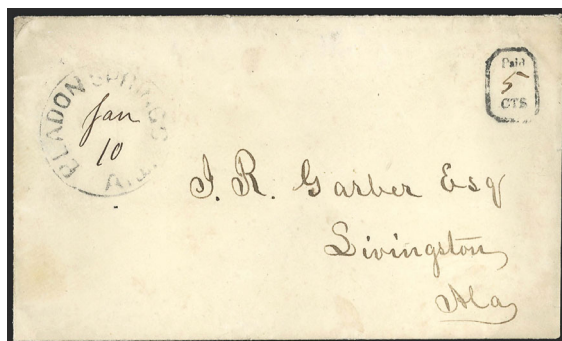 BLADON SPRINGS
Jan
10
ALA.
Paid
5
CTS
J. R. Garber Esq
Livingston
Ala